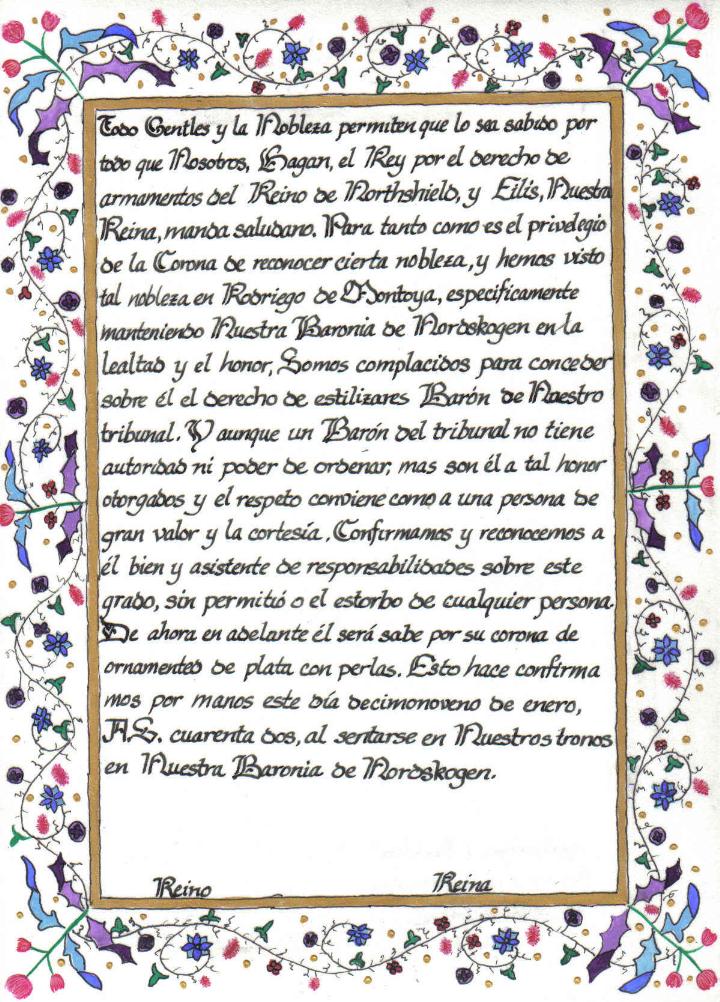 Todo Gentles y la Nobleza permiten que lo sea sabido por
todo que Nosotros, Hagan, el Rey por el derecho de
armamentos del Reino de Northshield, y Eilis, Nuestra
Reina, manda saludano. Para tanto como es el privelegio
de la Corona de reconocer cierta nobleza, y hemos visto
tal nobleza en Rodriego de Montoya, especificamente
manteniendo Nuestra Baronia de Nordskogen en la
lealtad y el honor, Somos complacidos para conceder
sobre él el derecho de estilizares Barón de Naestro
tribunal. Y aunque un Barón del tribunal no tiene
autoridad ni poder de ordenar, mas son él a tal honor
otorgados y el respeto conviene como a una persona de
gran valor y la cortesía. Confirmamos y reconocemos a
él bien y asistente de responsabilidades sobre este
grado, sin permitió o el estorbo de cualquier persona.
De ahora en adelante él será sabe por su corona de
ornamented de plata con perlas. Esto hace confirma
mos por manos este día decimonoveno de enero,
A.S. cuarenta dos, al sentarse en Nuestros tronos
en Nuestra Baronia de Nordskogen.
Reino Reina